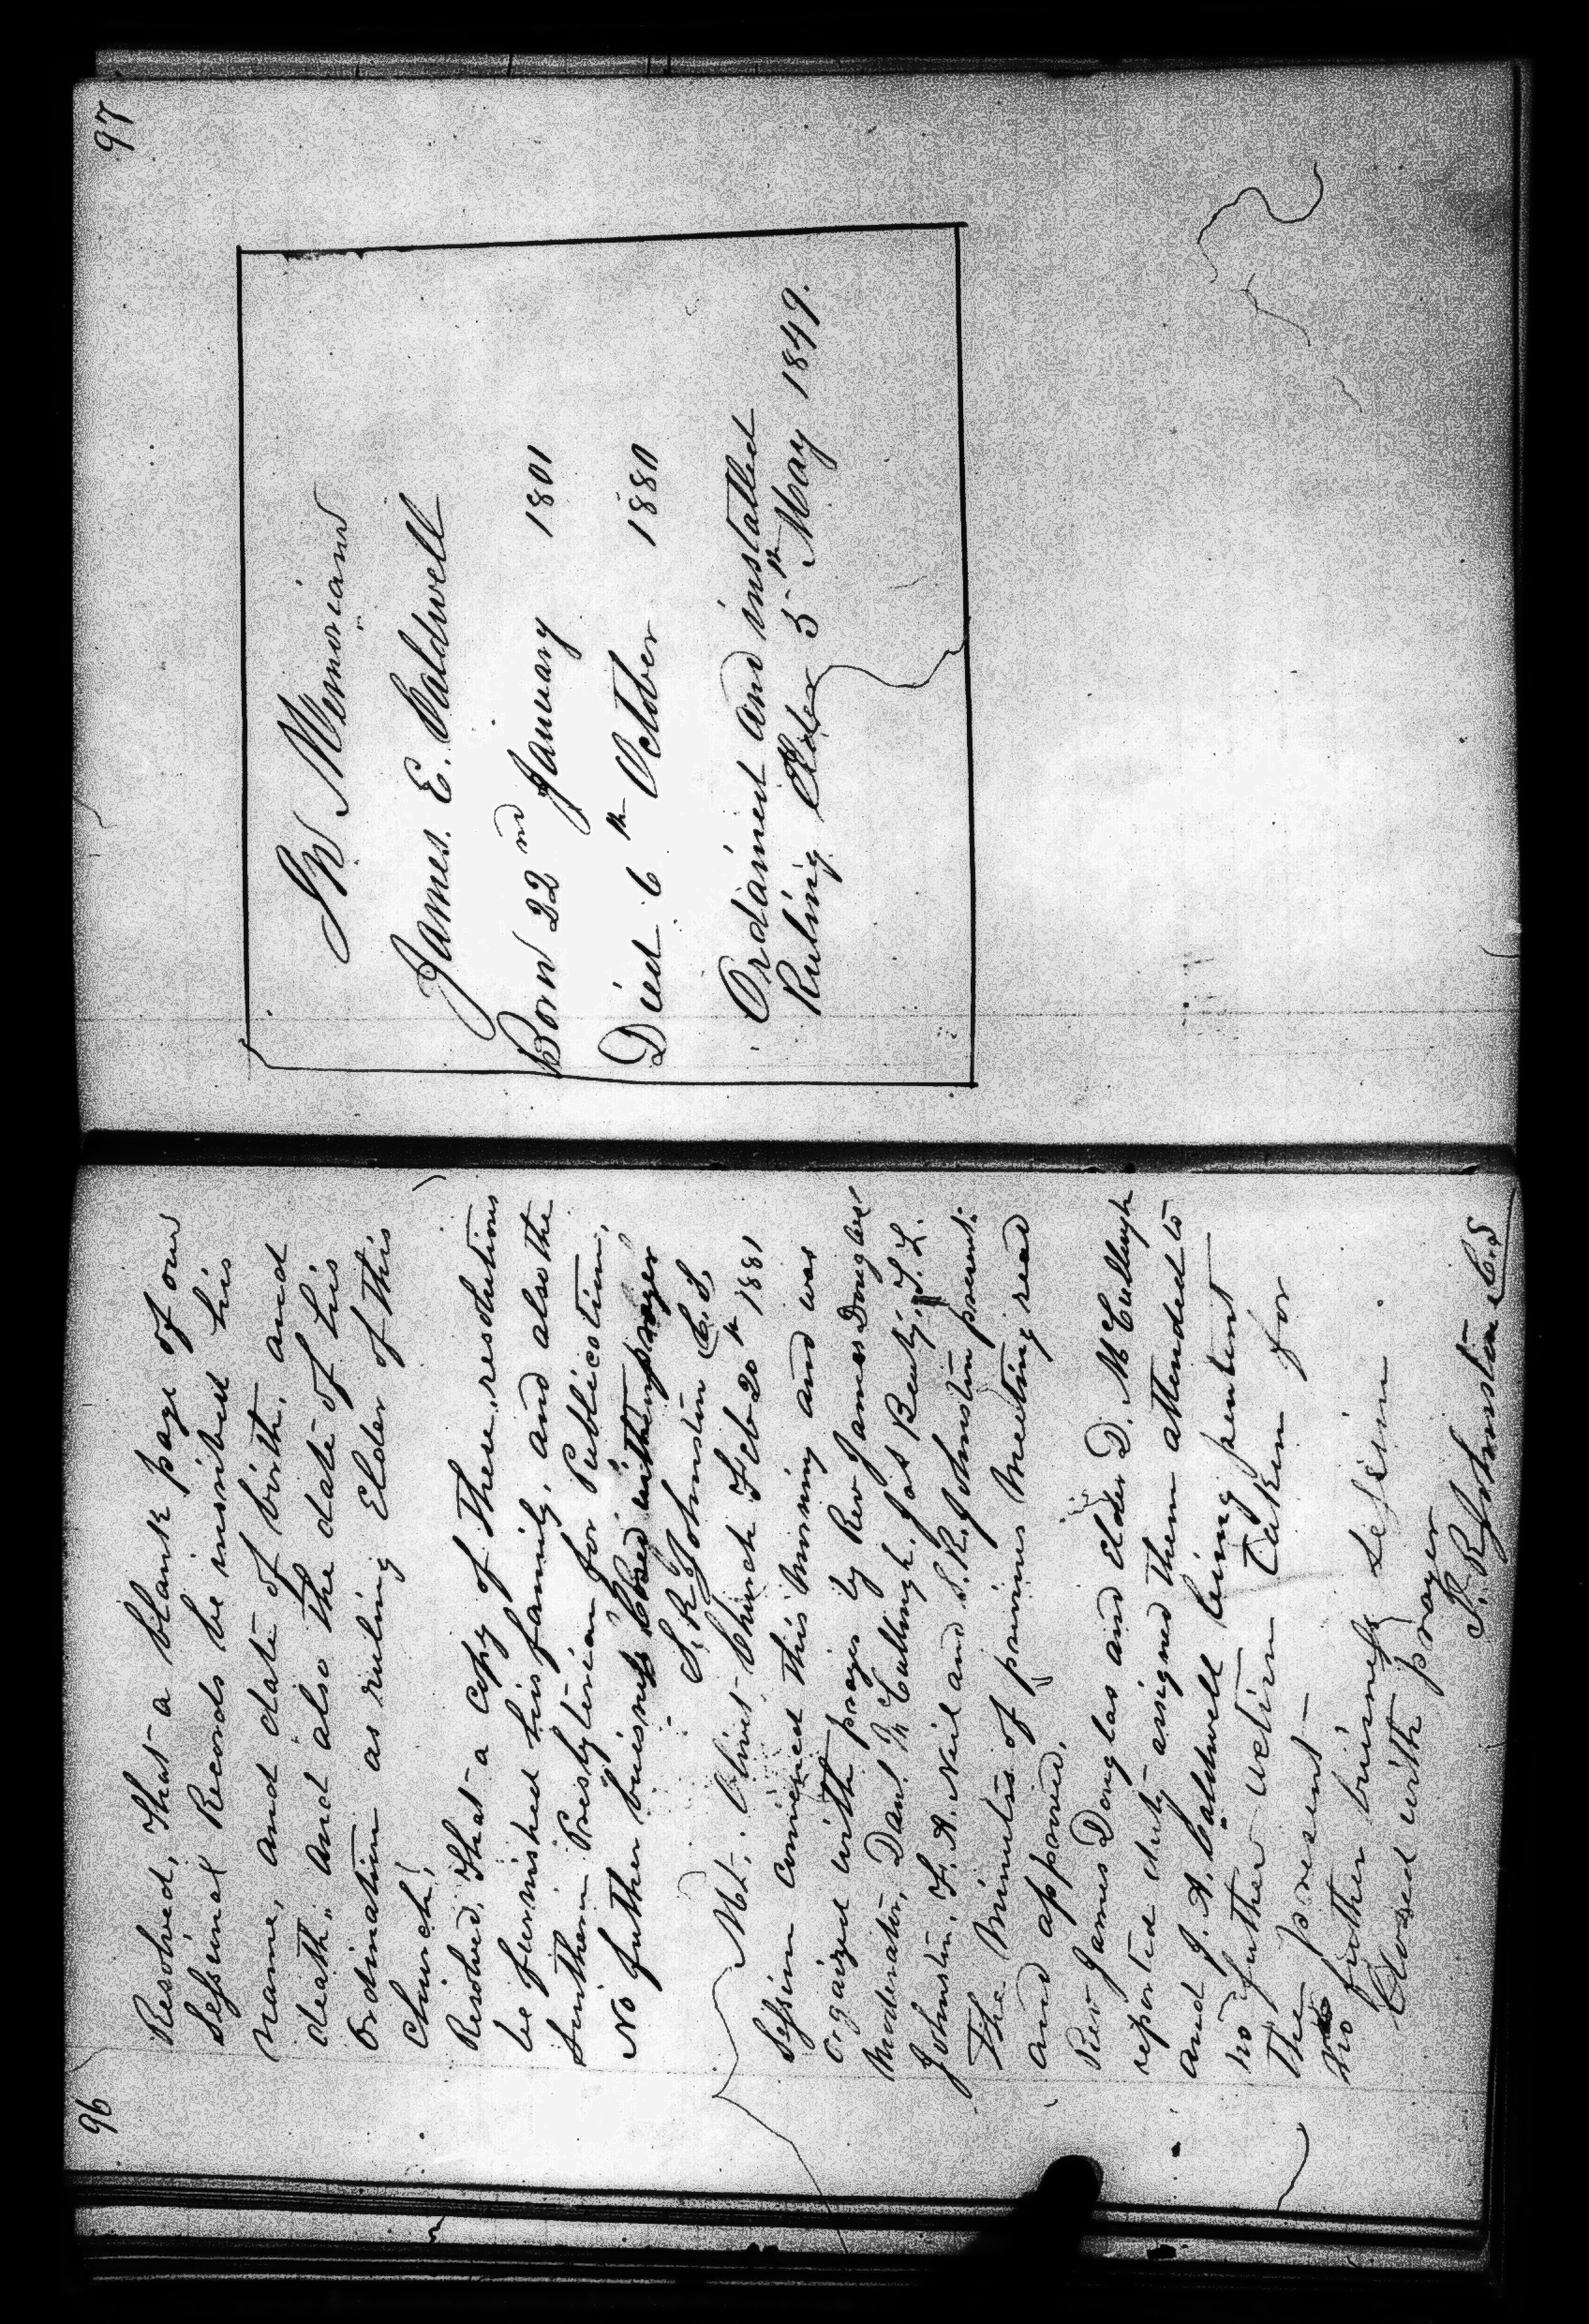 96
Resolved, That a blank page of our
Sessional Records be inscribed his
name, and date of birth, and
death, and also the date of his
Ordination as ruling Elder of this
Church!
Resolved, That a copy of these resolutions
be furnished his family, and also the
Southern Presbyterian for Publication,
No futher buisness Closed with prayer
S. R. Johnston C. S.
Mt. Olivet Church Feb 20th 1881
Session convened this morning and was
Orgaized with prayer by Rev James Douglas
Moderator, Danl McCullough, Jas Beaty, T. L.
Johnston, F. A. Neil and S. R. Johnston present.
The Minutes of previous Meeting read
and approved.
Rev James Douglas and Elder D. McCullough
reported duty assigned them attended to
and J. A. Caldwell being penitent
no futher action Taken for
the present
no further buisness session
Closed with prayer
S. R. Johnston C.S
97
In Memoriam
James. E. Caldwell
Born 22nd January 1801
Died 6th October 1880
Ordained and installed
Ruling Elder 5th May 1849.